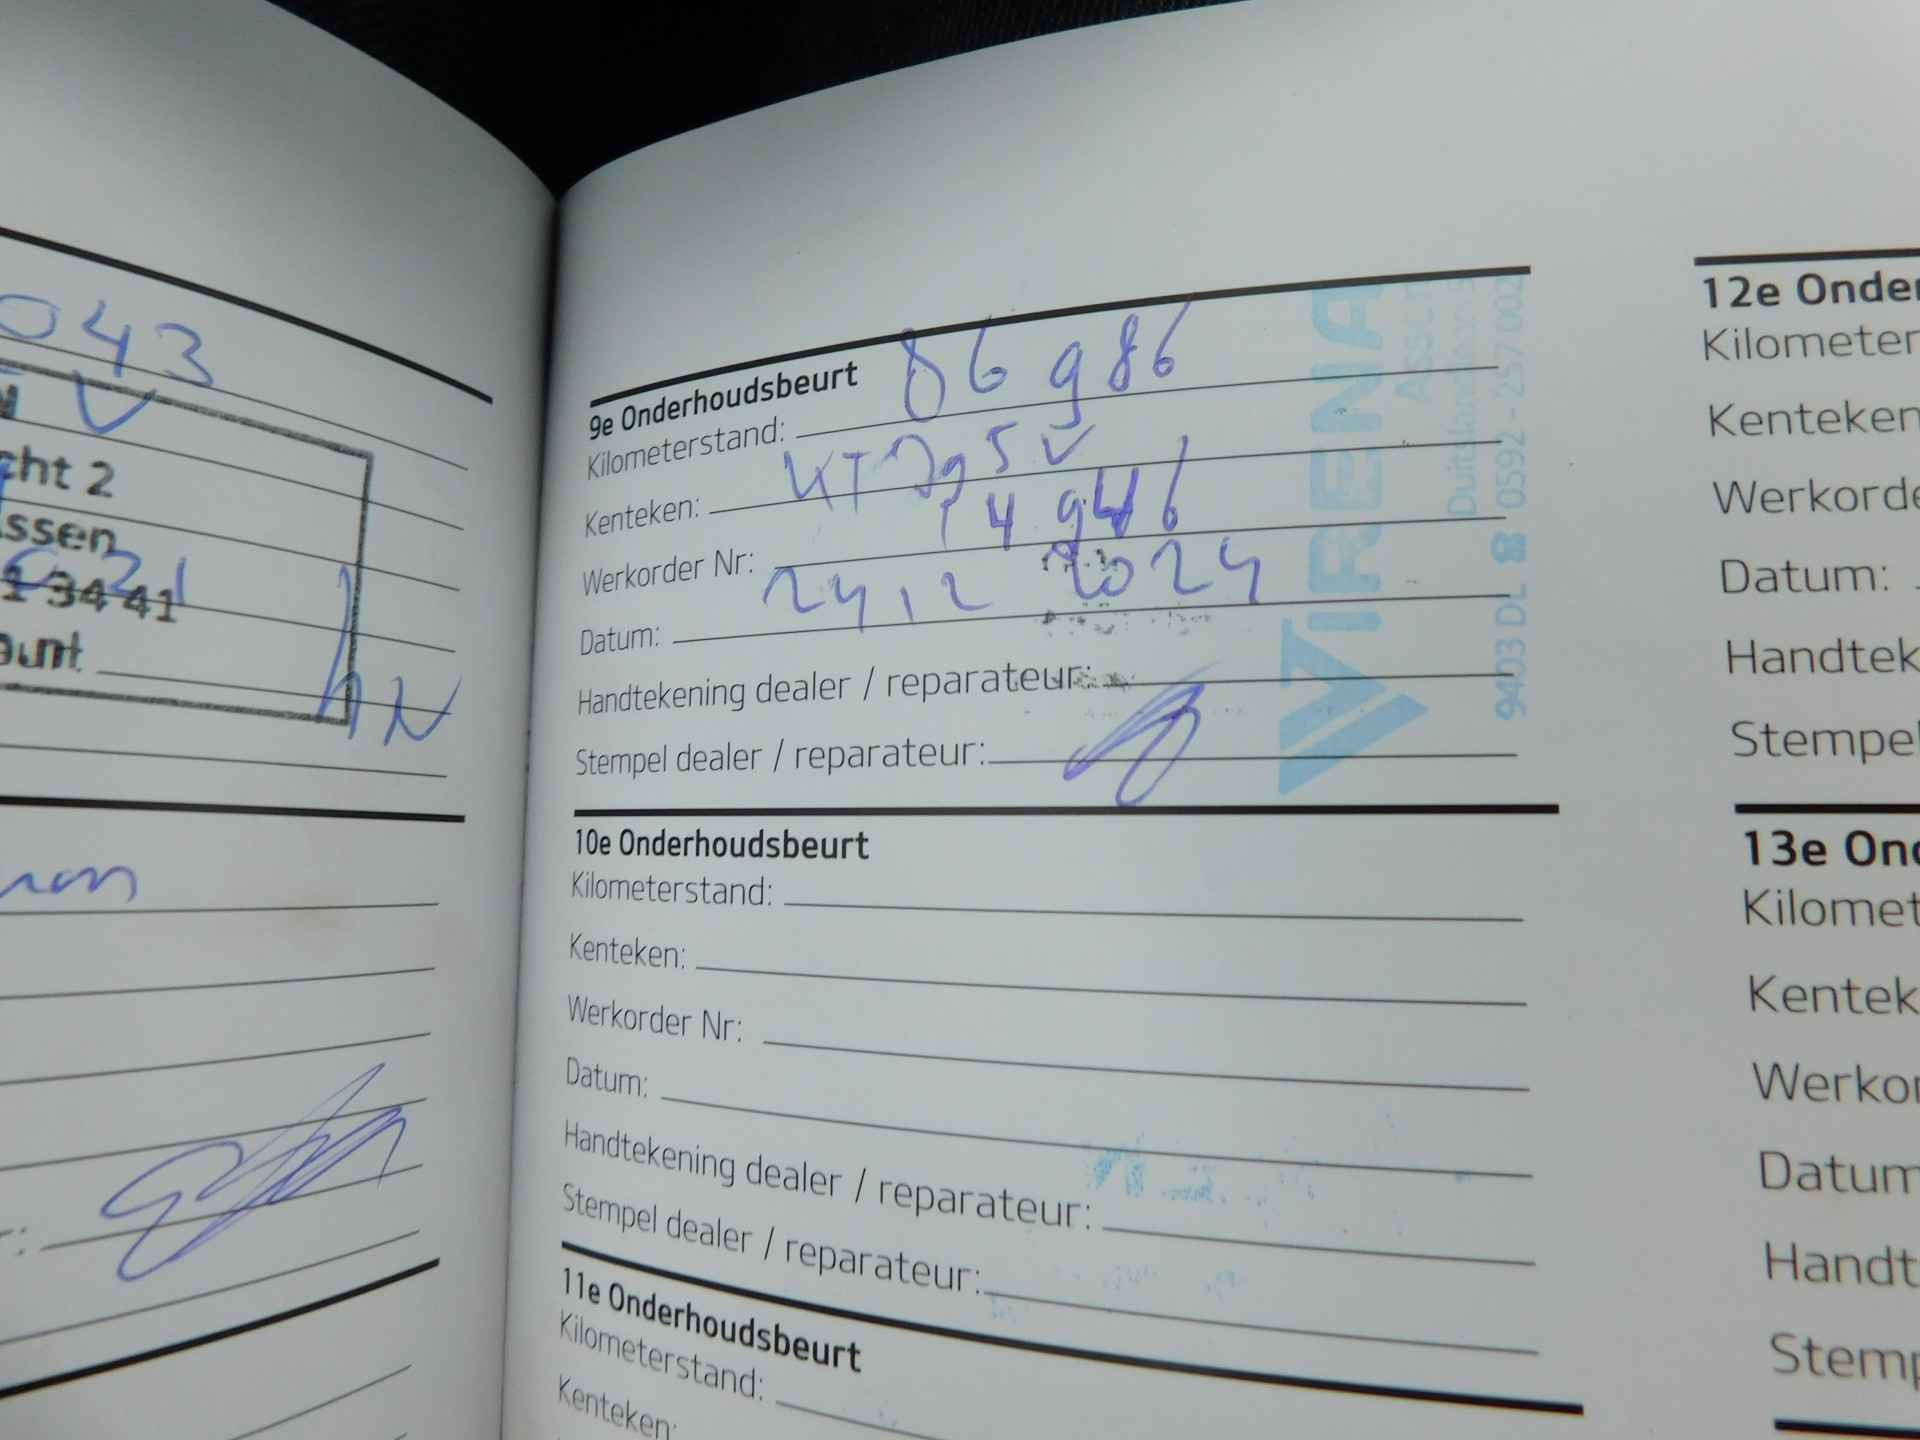 043
cht 2
ssen
1 34 41
9e Onderhoudsbeurt
Kilometerstand: 86986
Kenteken:
Werkorder Nr:
Datum: 24 12 2024
Handtekening dealer / reparateur:
Stempel dealer / reparateur:
VIRENA
9403 DL ☎ 0592 - 257 002
10e Onderhoudsbeurt
Kilometerstand:
Kenteken:
Werkorder Nr:
Datum:
Handtekening dealer / reparateur:
Stempel dealer / reparateur:
11e Onderhoudsbeurt
Kilometerstand:
Kenteken:
12e Onder
Kilometer
Kenteken
Werkorde
Datum:
Handtek
Stempel
13e Ond
Kilomet
Kentek
Werkor
Datum
Handt
Stemp